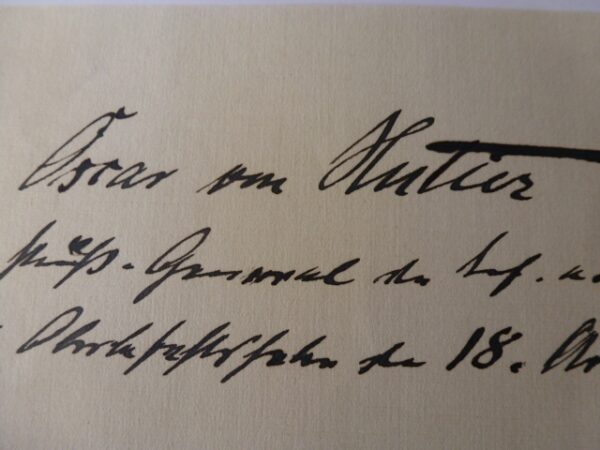 Oscar von Hutier
preuß. General der Inf.
Oberbefehlshaber der 18. Ar